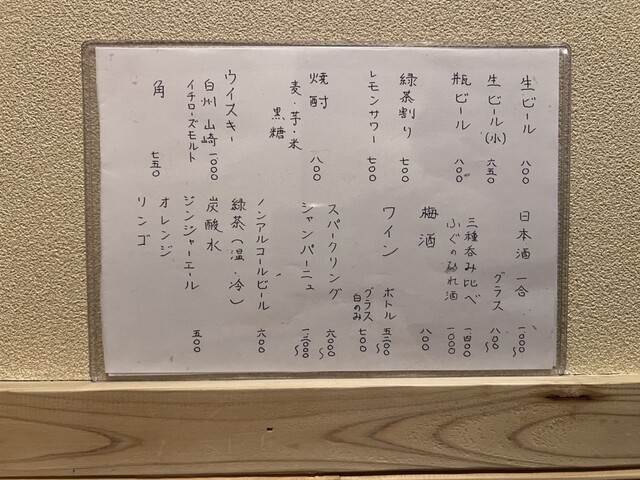 生ビール 八〇〇
生ビール(小) 六五〇
瓶ビール 八〇〇
緑茶割り 七〇〇
レモンサワー 七〇〇
焼酎 八〇〇
麦・芋・米
黒糖
ウイスキー
白州 山崎 一〇〇〇
イチローズモルト
角 七五〇
日本酒 一合 一〇〇〇〜
グラス 八〇〇〜
三種呑み比べ 一四〇〇
ふぐのひれ酒 一〇〇〇
梅酒 八〇〇
ワイン ボトル 五二〇〇〜
グラス 七〇〇
白のみ
スパークリング 六〇〇〇〜
シャンパーニュ 一二〇〇〇〜
ノンアルコールビール 六〇〇
緑茶(温・冷)
炭酸水
ジンジャーエール 五〇〇
オレンジ
リンゴ